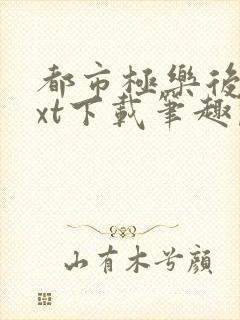 都市極樂後
xt下載筆趣
山有木兮顏